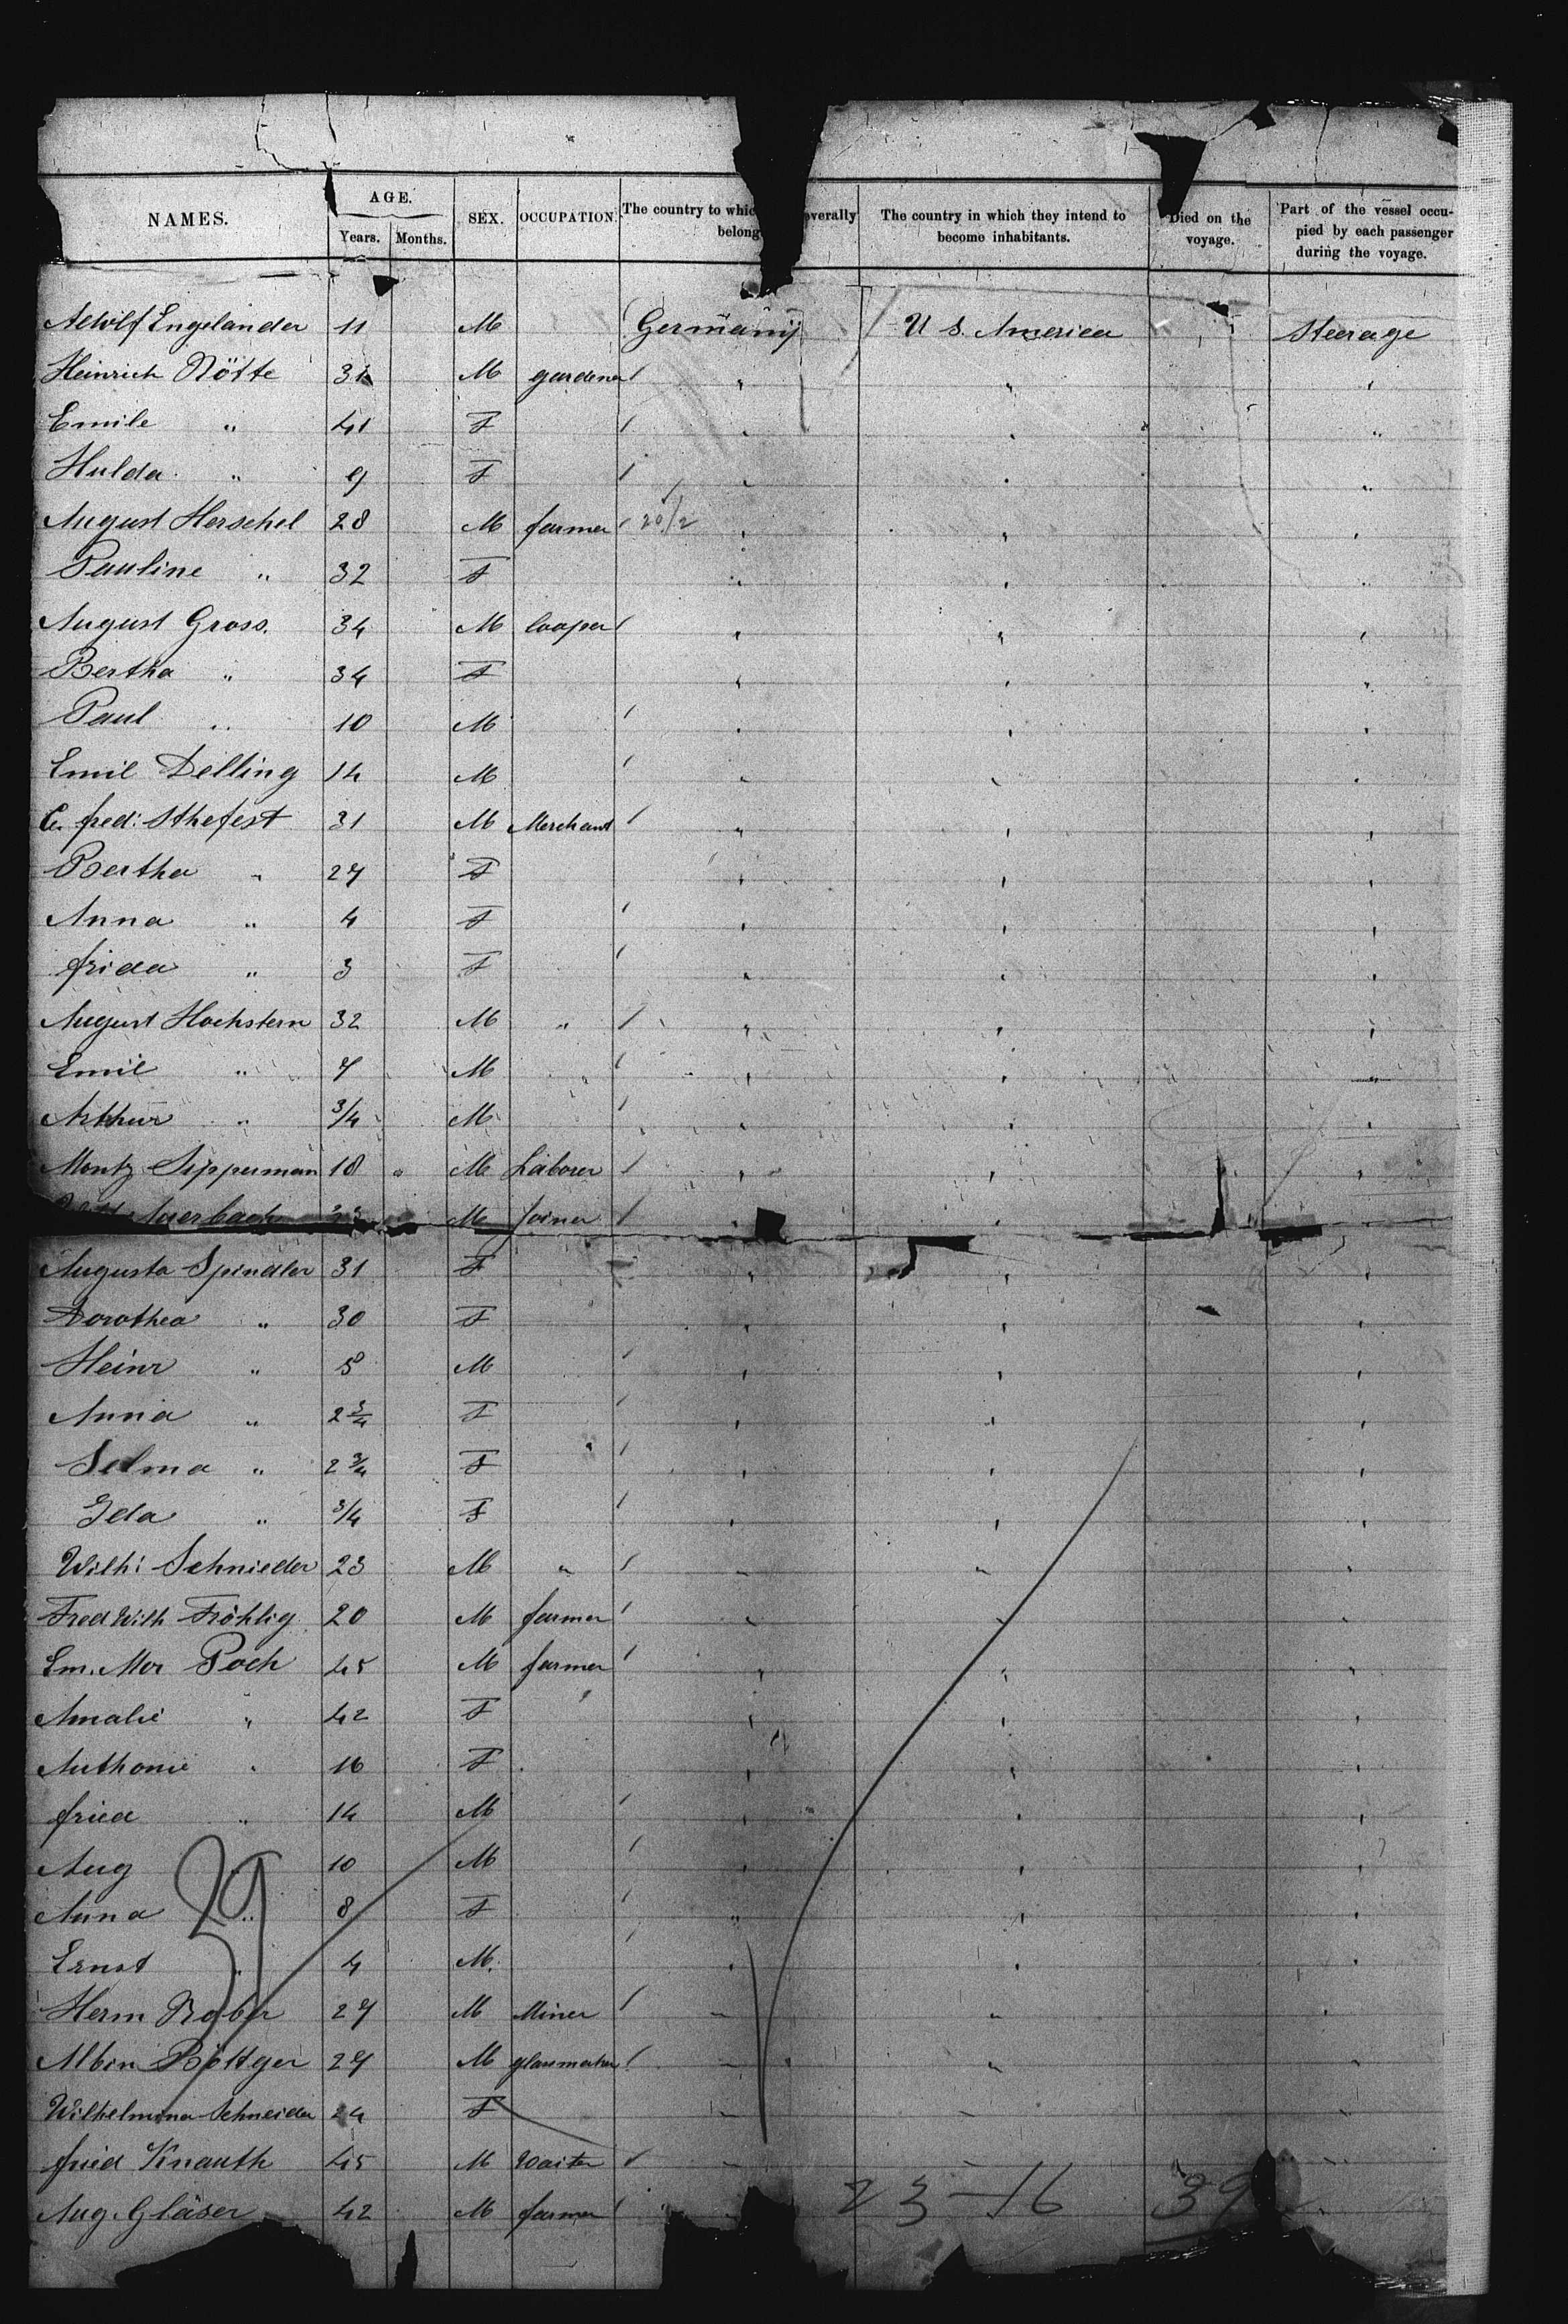 NAMES. AGE. Years. Months. SEX. OCCUPATION The country to belong The country in which they intend to become inhabitants. Died on the voyage. Part of the vessel occupied by each passenger during the voyage.
Adolf Engelander 11 M Germany U S. America Steerage
Heinrich Nötte M gardener "
Emile " 41 F "
Hulda " 9 F "
August Herschel 28 M farmer 20/2 "
Pauline " 32 F "
August Gross. 34 M Cooper "
Bertha " 34 F "
Paul " 10 M "
Emil Delling 14 M "
C. fred: Sthefest 31 M Merchant "
Bertha " 27 F "
Anna " 4 F "
frida " 3 F "
August Hochstern 32 M " "
Emil " 7 M "
Arthur " 3/4 M "
Moritz Sipperman 18 M Laborer "
Auerbach M Joiner "
Augusta Spindler 31 F "
Dorothea " 30 F "
Heinr " 5 M "
Anna " 2 3/4 F "
Selma " 2 3/4 F "
Ida " 3/4 F "
Wilh: Schnieder 23 M " "
Fred Wilh Fröhlig 20 M farmer "
Em. Mor Poch 45 M farmer "
Amalie " 42 F "
Anthonie " 16 F "
fried " 14 M "
Aug " 10 M "
Anna " 8 F "
Ernst " 4 M. "
Herm Rober 27 M Miner "
Albin Böttger 27 M glasmaker "
Wilhelmina Schneider 24 F "
fried Knauth 45 M Waiter "
Aug. Gläser 42 M farmer
39
23-16 39